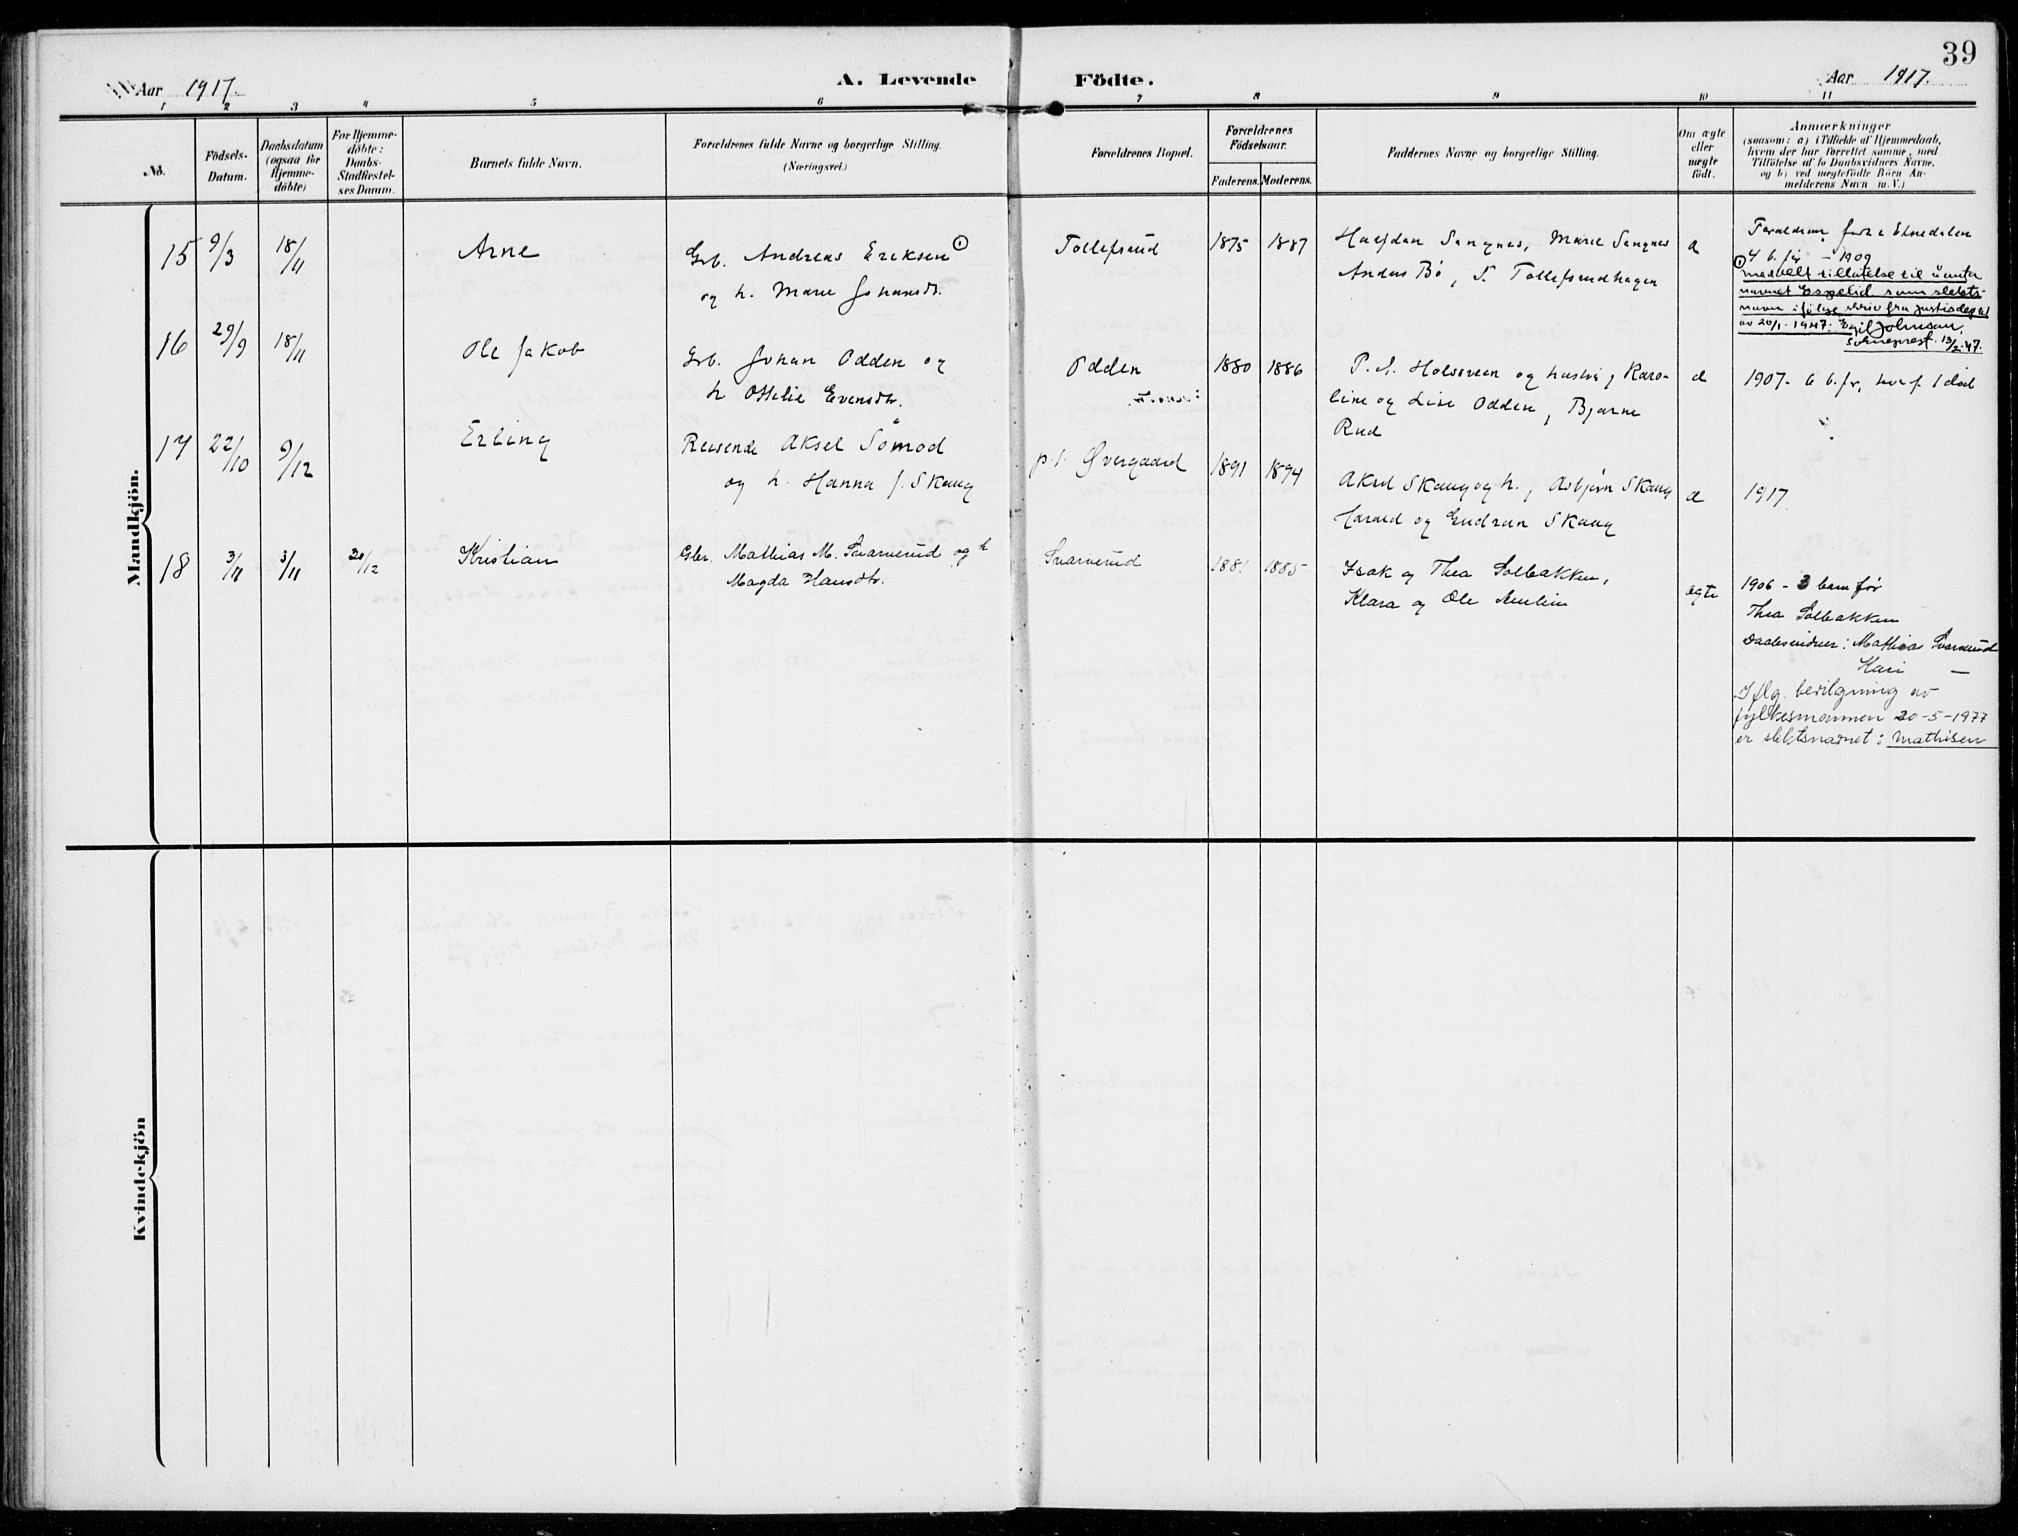 39
Aar 1917.
A. Levende Födte.
Aar 1917.
1 2 3 4 5 6 7 8 9 10 11
No.
Födsels-
Datum.
Daabsdatum
(ogsaa for
Hjemme-
döbte)
For Hjemme-
döbte:
Daabs-
Stadfæstel-
ses Datum.
Barnets fulde Navn.
Forældrenes fulde Navne og borgerlige Stilling.
(Næringsvei.)
Forældrenes Bopæl.
Forældrenes
Födselsaar.
Faderens. Moderens.
Faddernes Navne og borgerlige Stilling.
Om ægte
eller
uægte
födt.
Anmærkninger
(saasom: a) i Tilfælde af Hjemmedaab,
hvem der har forrettet samme, med
Tilföielse af to Daabsvidners Navne,
og b) ved uægtefödte Börn An-
melderens Navn m. V.)
Mandkjön.
15 9/3 18/11 Arne
Grb. Andreas Eriksen
og h. Marie Johansdr.
Tollefsrud 1875 1887
Halfdan Sangnes, Marie Sangnes
Anders Bö, Tollefsrudhagen
Forældrene fra Etnedalen
4 b. før - 1909
meddelt tillatelse til å anta
navnet Espelid som slekts-
navn ifölge skriv fra Justisdep.
av 20/1 1947. Egil Johnsen,
sokneprest 13/2-47.
16 29/9 18/11 Ole Jakob
Grb. Johan Odden og
h Ottilie Evensdtr.
Odden 1880 1886
P. A. Holsveen og hustru, Karo-
line og Lise Odden, Bjarne
Rud
1907 - 6 b. før, hvoraf 1 död
17 22/10 9/12 Erling
Reisende Aksel Sömod
og h. Hanna f. Skaug
p.t. Øvergaard 1891 1894
Aksel Skaug og h., Asbjørn Skaug
Harald og Gudrun Skaug
1917
18 3/11 3/11 20/12 Kristian
Gbr. Mathias M. Svarverud og h
Magda Hansdtr.
Svarverud 1881 1885
Isak og Thea Solbakken,
Klara og Ole
ægte
1906 - 3 barn før
Thea Solbakken
Daabsvidner: Mathias Svarverud
Kari —
I flg. bevilgning av
fylkesmannen 20-5-1977
er slektsnavnet: Mathisen
Kvindekjön